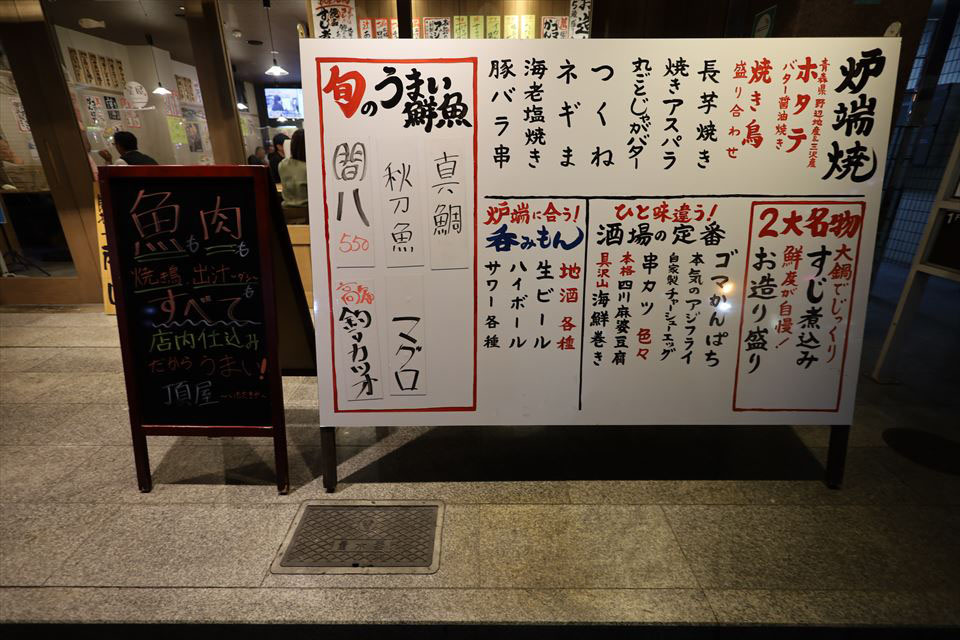 魚も肉も
焼き鳥、出汁〜ダシ〜も
すべて
店内仕込み
だからうまい!
頂屋〜いただきや〜
炉端焼
青森県野辺地産&三沢産
ホタテ
バター醤油焼き
焼き鳥
盛り合わせ
長芋焼き
焼きアスパラ
丸ごとじゃがバター
つくね
ネギま
海老塩焼き
豚バラ串
旬のうまい鮮魚
真鯛
秋刀魚
間八
550
マグロ
釣りカツオ
2大名物
大鍋でじっくり
すじ煮込み
鮮度が自慢!
お造り盛り
ひと味違う!
酒場の定番
ゴマかんぱち
本気のアジフライ
自家製チャーシューエッグ
串カツ 色々
本格四川麻婆豆腐
具沢山海鮮巻き
炉端に合う!
呑みもん
地酒各種
生ビール
ハイボール
サワー各種